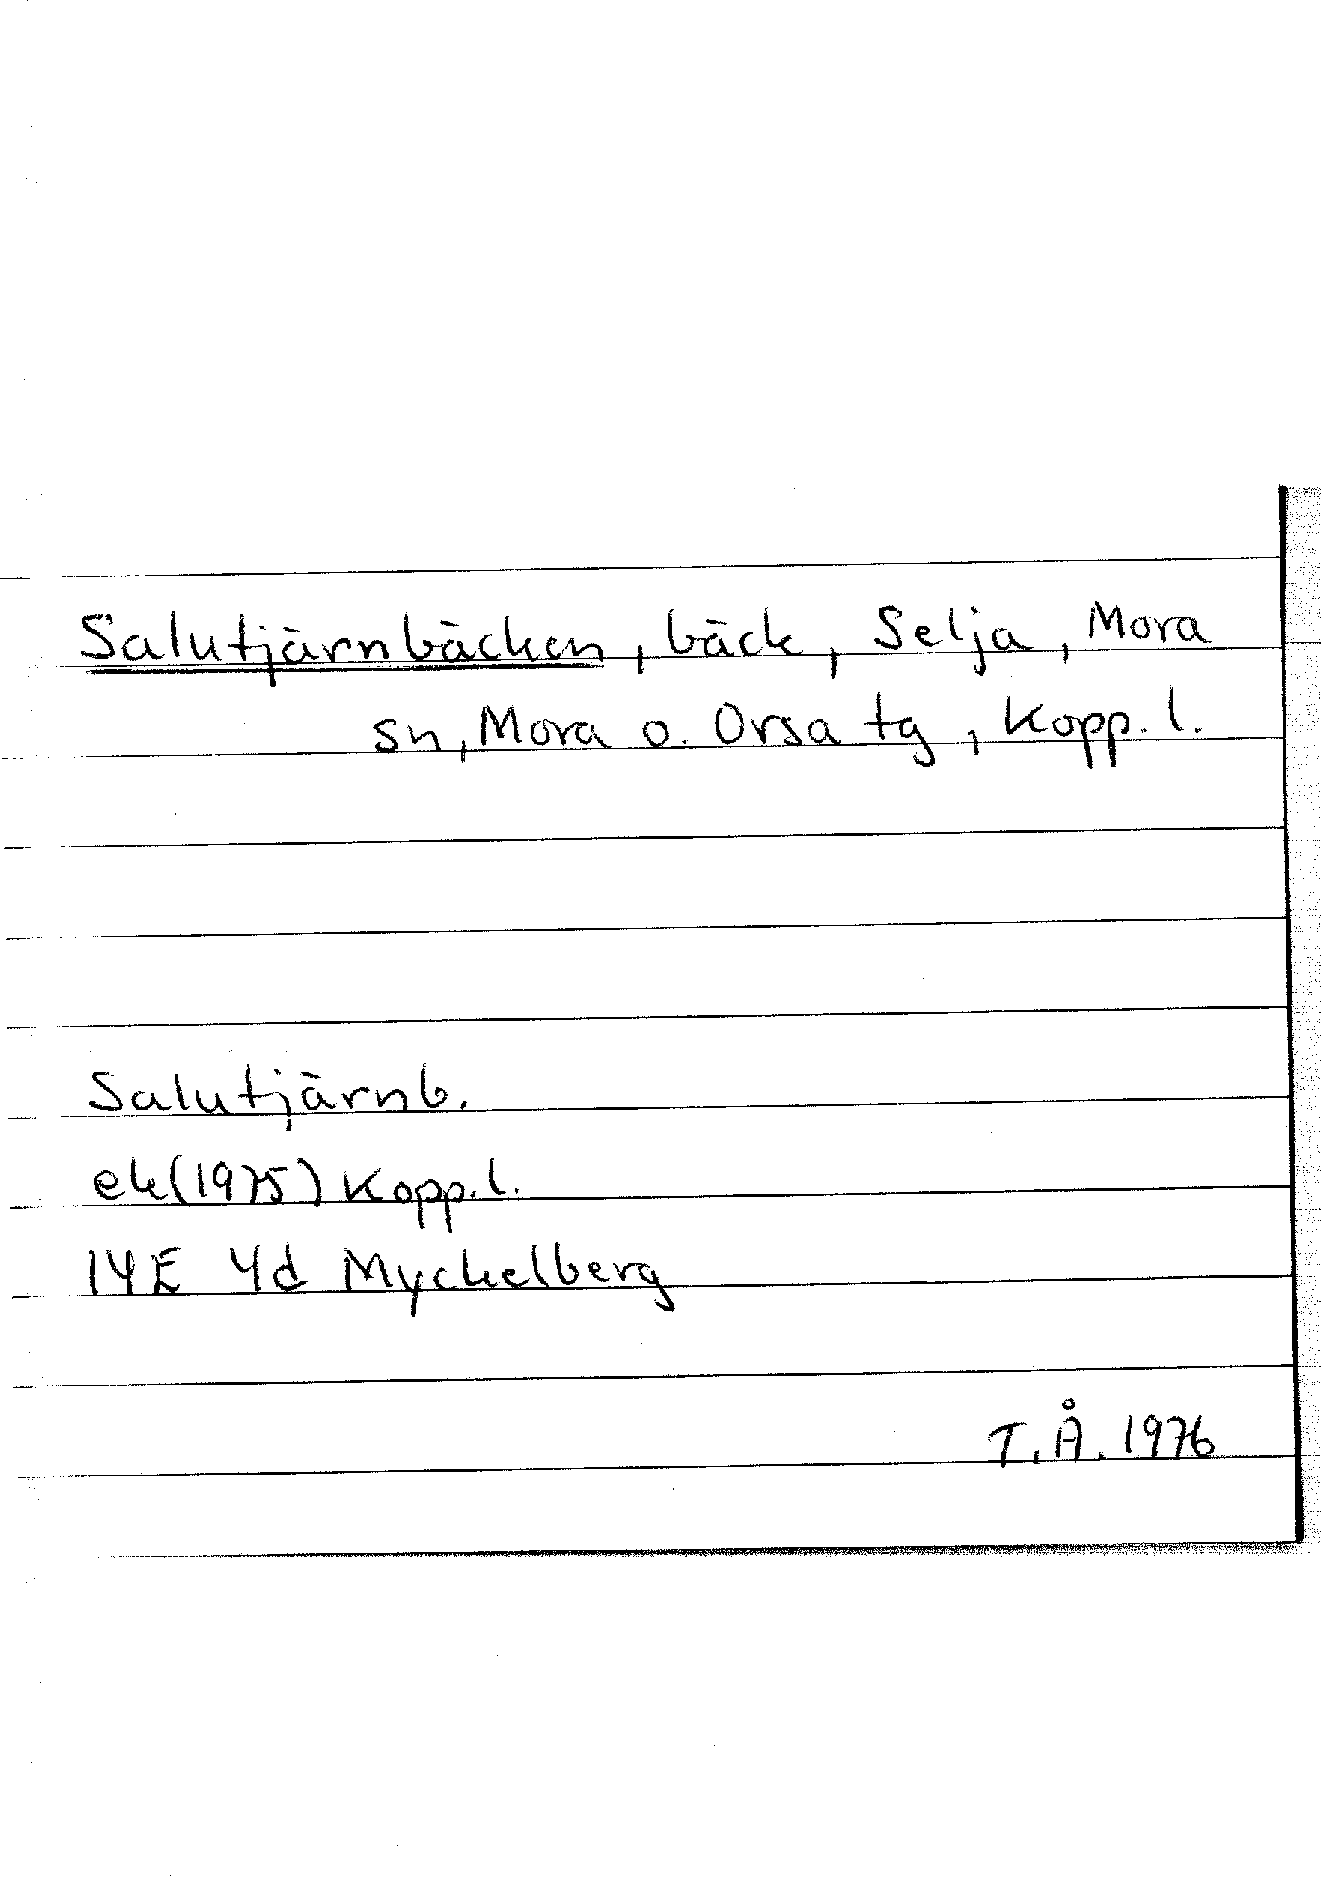 Salutjärnbäcken, bäck, Selja, Mora
sn, Mora o. Orsa tg, Kopp. l.
Salutjärnb.
ek(1975) Kopp. l.
14E 4d Myckelberg
T.Å. 1976